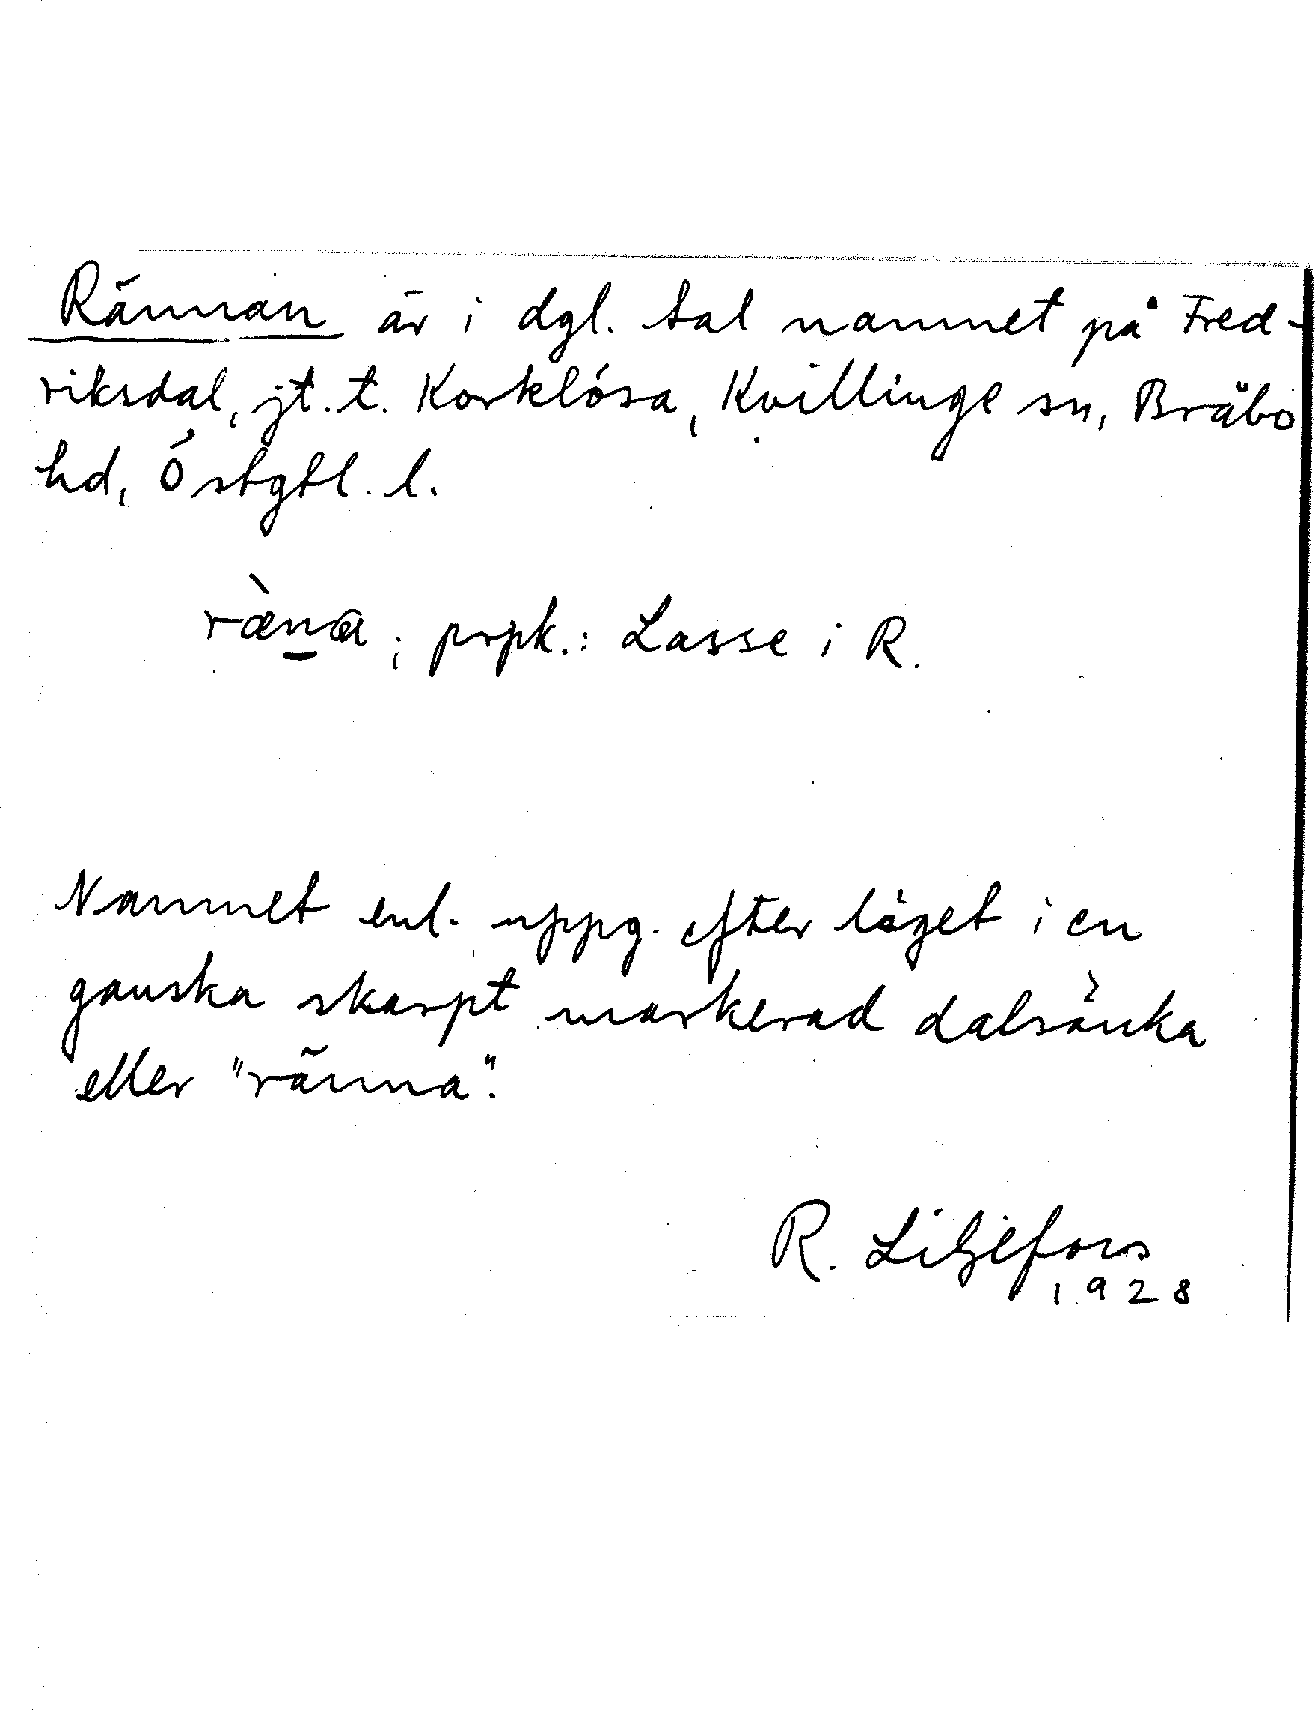 Rännan är i dgl. tal namnet på Fred-
riksdal, jt. t. Korklösa, Kvillinge sn, Bråbo
hd, Östgtl. l.
ræ̀na; prpk.: Lasse i R.
Namnet enl. uppg. efter läget i en
ganska skarpt markerad dalsänka
eller "ränna".
R. Liljefors
1928